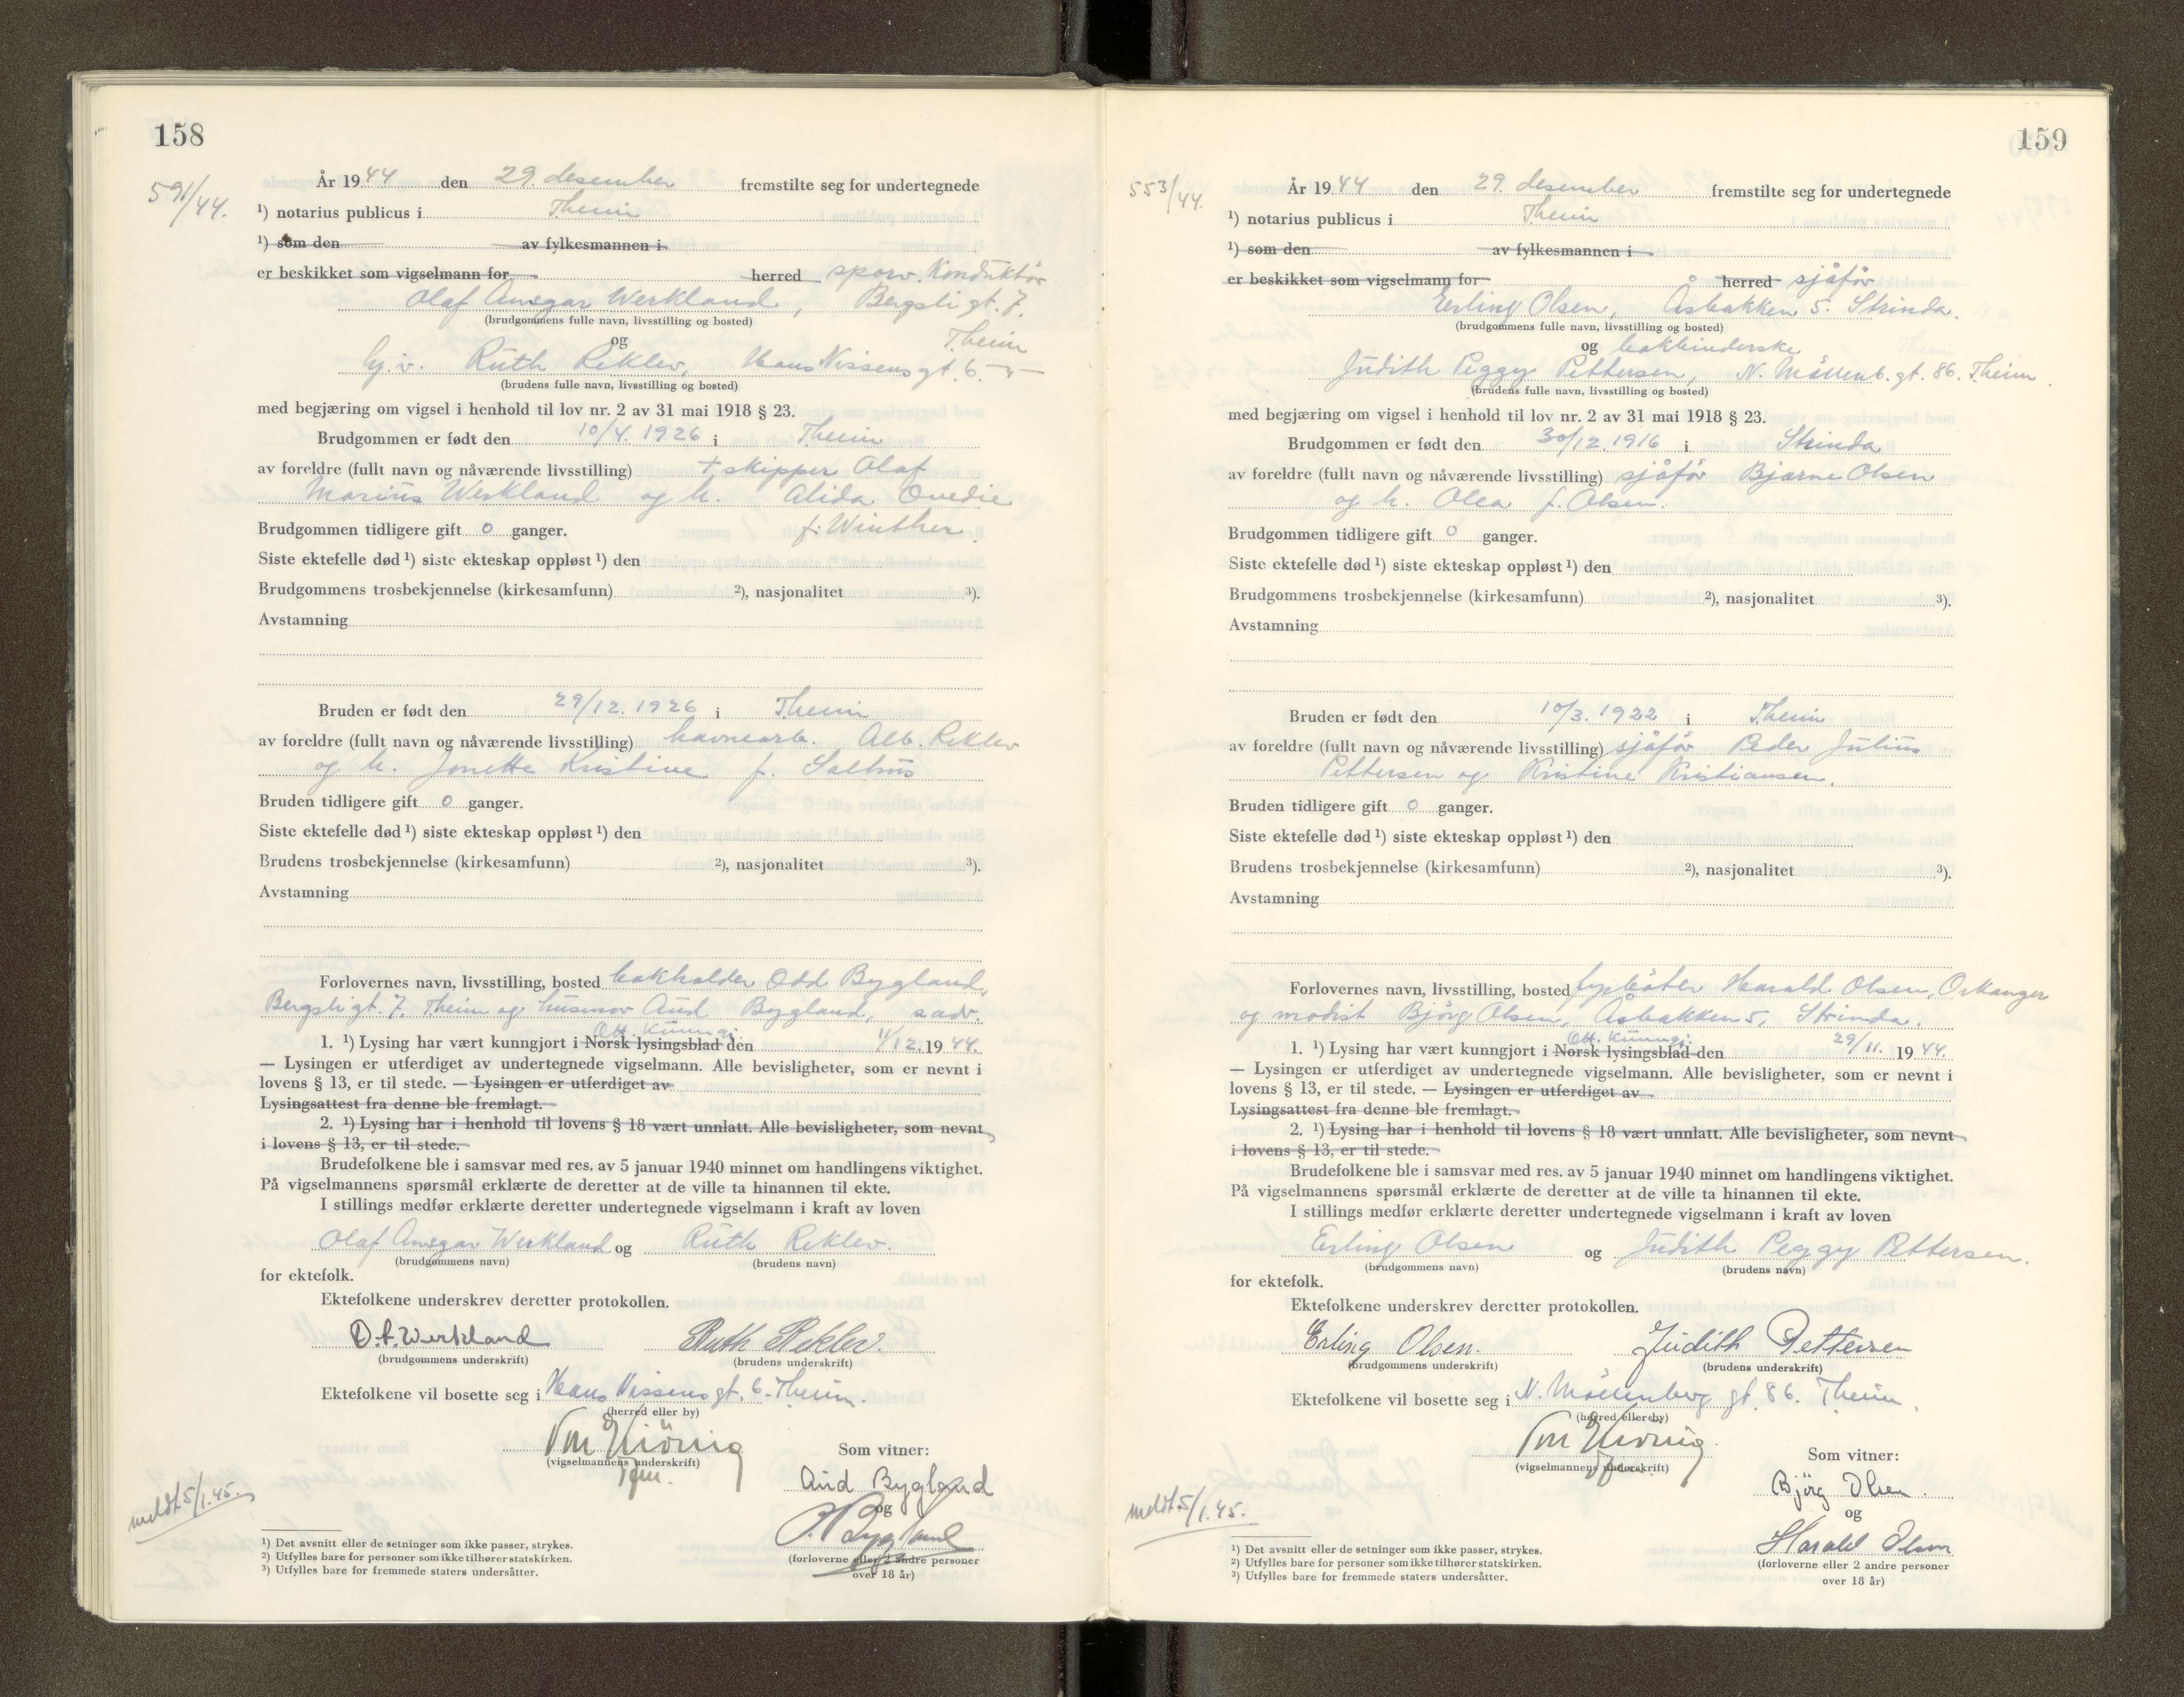 158
591/44.
År 1944 den 29. desember fremstilte seg for undertegnede
¹) notarius publicus i Theim
¹) som den av fylkesmannen i
er beskikket som vigselmann for herred sporv. Konduktör
Olaf Ansgar Werkland, Bergsli gt. 7.
(brudgommens fulle navn, livsstilling og bosted)
og Theim
hj.v. Ruth Reklev, Hans Nissens gt. 6. -"-
(brudens fulle navn, livsstilling og bosted)
med begjæring om vigsel i henhold til lov nr. 2 av 31 mai 1918 § 23.
Brudgommen er født den 10/4. 1926 i Theim
av foreldre (fullt navn og nåværende livsstilling) + skipper Olaf
Marius Werkland og h. Alida Ovedie
Brudgommen tidligere gift 0 ganger. f. Winther.
Siste ektefelle død ¹) siste ekteskap oppløst ¹) den
Brudgommens trosbekjennelse (kirkesamfunn) ²), nasjonalitet ³).
Avstamning
Bruden er født den 29/12. 1926 i Theim
av foreldre (fullt navn og nåværende livsstilling) havnearb. Alb. Reklev
og h. Jonette Kristine f. Saltnes
Bruden tidligere gift 0 ganger.
Siste ektefelle død ¹) siste ekteskap oppløst ¹) den
Brudens trosbekjennelse (kirkesamfunn) ²), nasjonalitet ³).
Avstamning
Forlovernes navn, livsstilling, bosted bokholder Odd Bygland,
Bergsli gt. 7. Theim og husmor Aud Bygland, sadr.
Off. Kunngj.
1. ¹) Lysing har vært kunngjort i Norsk lysingsblad den 11/12. 1944.
— Lysingen er utferdiget av undertegnede vigselmann. Alle bevisligheter, som er nevnt i
lovens § 13, er til stede. — Lysingen er utferdiget av
Lysingsattest fra denne ble fremlagt.
2. ¹) Lysing har i henhold til lovens § 18 vært unnlatt. Alle bevisligheter, som nevnt
i lovens § 13, er til stede.
Brudefolkene ble i samsvar med res. av 5 januar 1940 minnet om handlingens viktighet.
På vigselmannens spørsmål erklærte de deretter at de ville ta hinannen til ekte.
I stillings medfør erklærte deretter undertegnede vigselmann i kraft av loven
Olaf Ansgar Werkland og Ruth Reklev.
(brudgommens navn) (brudens navn)
for ektefolk.
Ektefolkene underskrev deretter protokollen.
O.A. Werkland Ruth Reklev.
(brudgommens underskrift) (brudens underskrift)
Ektefolkene vil bosette seg i Hans Nissens gt. 6. Theim.
(herred eller by)
(vigselmannens underskrift)
Som vitner:
Aud Bygland
og
Bygland
(forloverne eller 2 andre personer
over 18 år)
meldt 5/1.45.
¹) Det avsnitt eller de setninger som ikke passer, strykes.
²) Utfylles bare for personer som ikke tilhører statskirken.
³) Utfylles bare for fremmede staters undersåtter.
159
553/44.
År 1944 den 29. desember fremstilte seg for undertegnede
¹) notarius publicus i Theim
¹) som den av fylkesmannen i
er beskikket som vigselmann for herred sjåför
Erling Olsen, Åsbakken 5. Strinda.
(brudgommens fulle navn, livsstilling og bosted)
og bokbinderske
Judith Peggy Pettersen, N. Möllenb. gt. 86. Theim.
(brudens fulle navn, livsstilling og bosted)
med begjæring om vigsel i henhold til lov nr. 2 av 31 mai 1918 § 23.
Brudgommen er født den 30/12. 1916 i Strinda
av foreldre (fullt navn og nåværende livsstilling) sjåför Bjarne Olsen
og h. Olea f. Olsen.
Brudgommen tidligere gift 0 ganger.
Siste ektefelle død ¹) siste ekteskap oppløst ¹) den
Brudgommens trosbekjennelse (kirkesamfunn) ²), nasjonalitet ³).
Avstamning
Bruden er født den 10/3. 1922 i Theim
av foreldre (fullt navn og nåværende livsstilling) sjåför Peder Julius
Pettersen og Kristine Kristiansen.
Bruden tidligere gift 0 ganger.
Siste ektefelle død ¹) siste ekteskap oppløst ¹) den
Brudens trosbekjennelse (kirkesamfunn) ²), nasjonalitet ³).
Avstamning
Forlovernes navn, livsstilling, bosted fyrböter Harald Olsen, Orkanger
og modist Björg Olsen, Åsbakken 5, Strinda.
Off. Kunngj.
1. ¹) Lysing har vært kunngjort i Norsk lysingsblad den 29/11. 1944.
— Lysingen er utferdiget av undertegnede vigselmann. Alle bevisligheter, som er nevnt i
lovens § 13, er til stede. — Lysingen er utferdiget av
Lysingsattest fra denne ble fremlagt.
2. ¹) Lysing har i henhold til lovens § 18 vært unnlatt. Alle bevisligheter, som nevnt
i lovens § 13, er til stede.
Brudefolkene ble i samsvar med res. av 5 januar 1940 minnet om handlingens viktighet.
På vigselmannens spørsmål erklærte de deretter at de ville ta hinannen til ekte.
I stillings medfør erklærte deretter undertegnede vigselmann i kraft av loven
Erling Olsen og Judith Peggy Pettersen.
(brudgommens navn) (brudens navn)
for ektefolk.
Ektefolkene underskrev deretter protokollen.
Erling Olsen. Judith Pettersen
(brudgommens underskrift) (brudens underskrift)
Ektefolkene vil bosette seg i N. Möllenberg gt. 86. Theim.
(herred eller by)
(vigselmannens underskrift)
Som vitner:
Björg Olsen.
og
Harald Olsen
(forloverne eller 2 andre personer
over 18 år)
meldt 5/1.45.
¹) Det avsnitt eller de setninger som ikke passer, strykes.
²) Utfylles bare for personer som ikke tilhører statskirken.
³) Utfylles bare for fremmede staters undersåtter.